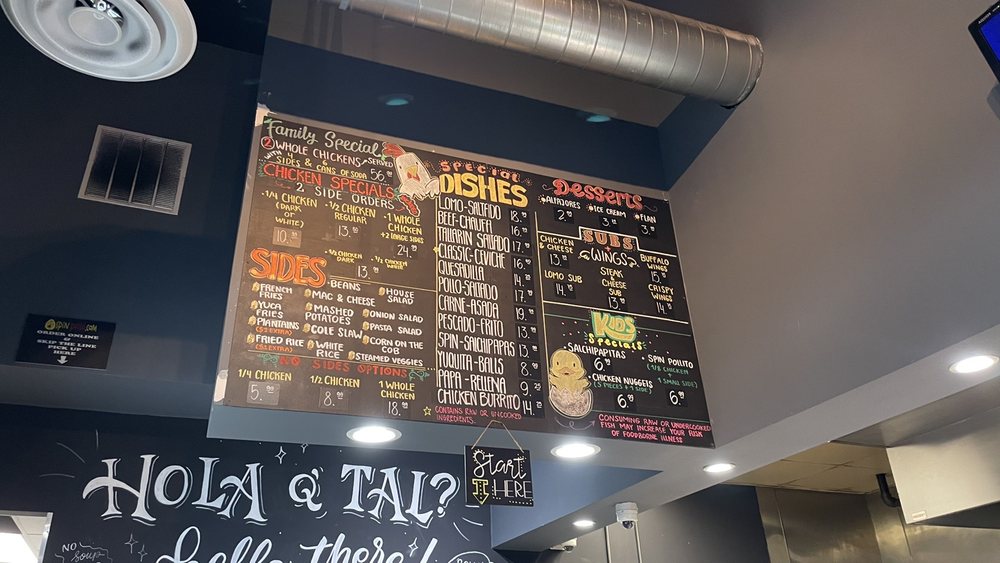 Family Special
2 WHOLE CHICKENS SERVED
WITH 4 SIDES & 6 CANS OF SODA 56.
CHICKEN SPECIALS
2 SIDE ORDERS
1/4 CHICKEN
(DARK
OF
WHITE)
10.
1/2 CHICKEN
REGULAR
13.
1 WHOLE
CHICKEN
+2 LARGE SIDES
24.
1/2 CHICKEN
DARK
1/2 CHICKEN
WHITE
13.
SIDES
FRENCH
FRIES
YUCA
FRIES
PLANTAINS
FRIED RICE
BEANS
MAC & CHEESE
MASHED
POTATOES
COLE SLAW
WHITE
RICE
HOUSE
SALAD
ONION SALAD
PASTA SALAD
CORN ON THE
COB
STEAMED VEGGIES
NO SIDES OPTIONS
1/4 CHICKEN
5.
1/2 CHICKEN
8.
1 WHOLE
CHICKEN
18.
SPECIAL
DISHES
LOMO-SALTADO 18.
BEEF-CHAUFA 16.
TALLARIN SALADO 17.
CLASSIC-CEVICHE 16.
QUESADILLA 14.
POLLO-SALTADO 17.
CARNE-ASADA 19.
PESCADO-FRITO 13.
SPIN-SALCHIPAPAS 13.
YUQUITA-BALLS 8.
PAPA-RELLENA 9.25
CHICKEN BURRITO 14.
CONTAINS RAW OR UNCOOKED
INGREDIENTS.
Desserts
ALFAJORES
2.
ICE CREAM
3.
FLAN
3.
SUBS
+
WINGS
CHICKEN
& CHEESE
13.
LOMO SUB
14.
STEAK
&
CHEESE
SUB
13.
BUFFALO
WINGS
15.
CRISPY
WINGS
14.
KIDS
Specials
SALCHIPAPITAS
6.
CHICKEN NUGGETS
(5 PIECES + 1 SIDE)
6.
SPIN POLLITO
(1/8 CHICKEN
+
1 SMALL SIDE)
6.
CONSUMING RAW OR UNDERCOOKED
FISH MAY INCREASE YOUR RISK
OF FOODBORNE ILLNESS
ORDER ONLINE
&
SKIP THE LINE
PICK UP
HERE
Start
HERE
HOLA Q' TAL?
hello there!
NO
SOUP